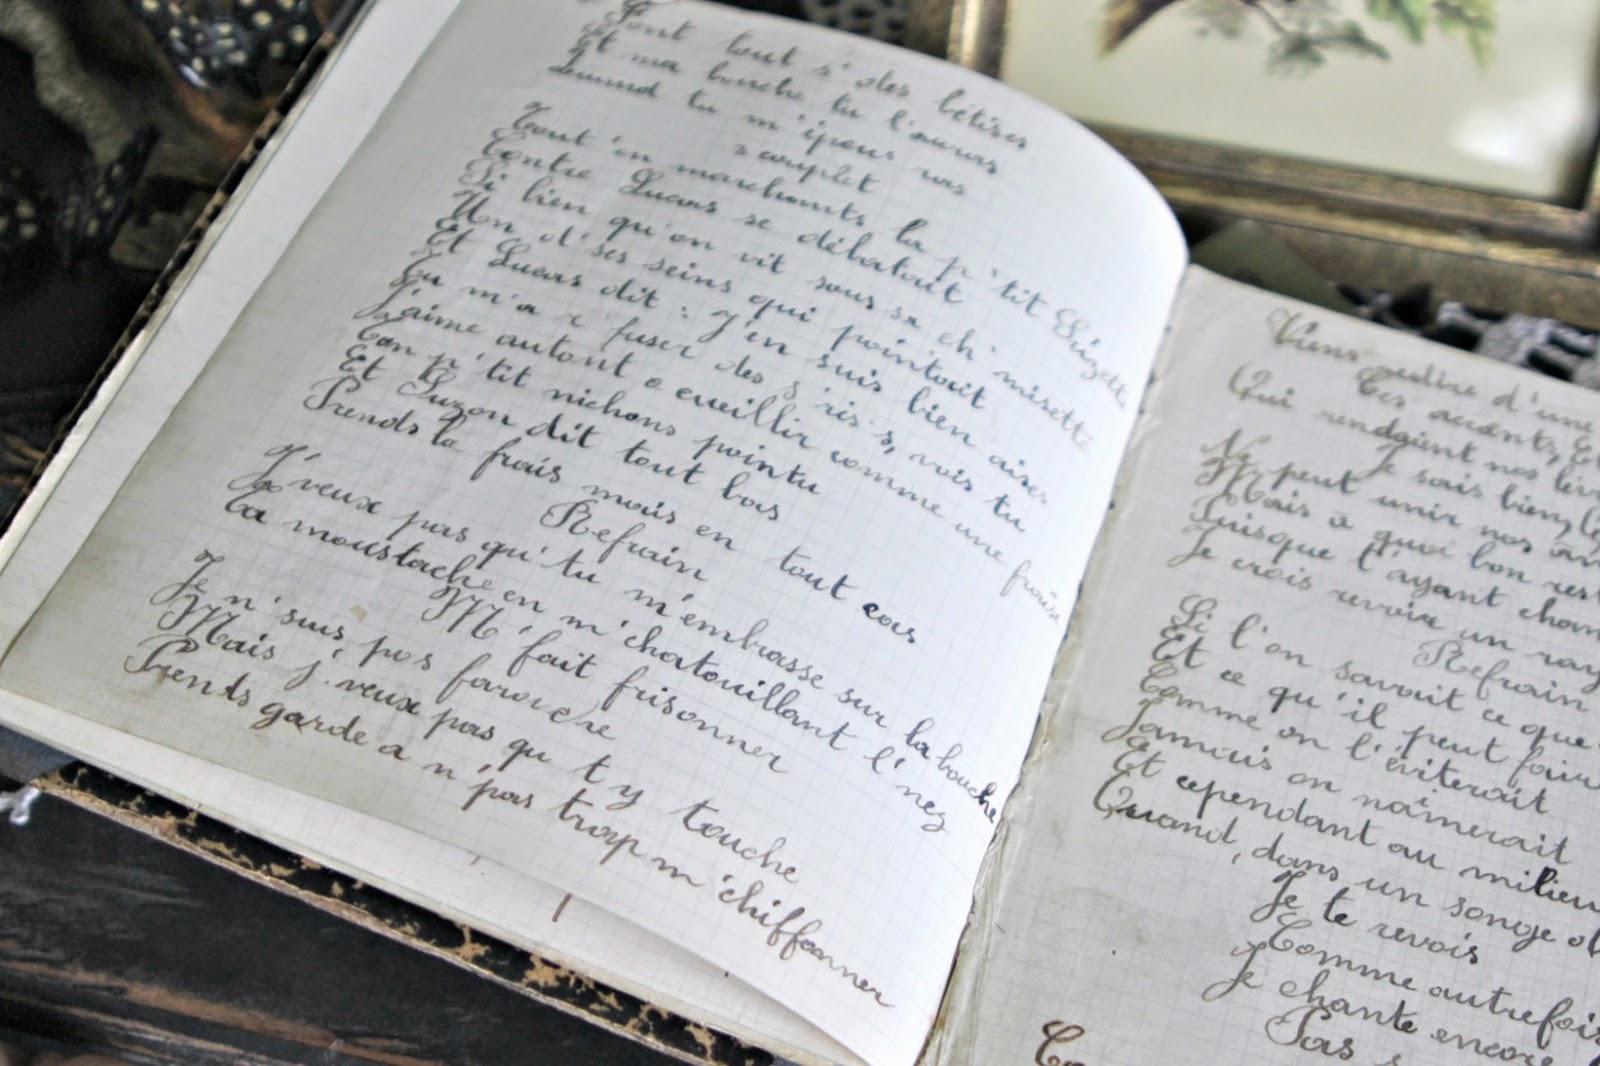 Font tout s' des bétises
Et ma bouche tu l'auras
Quand tu m'épous'ras
couplet
Tout'en marchants la p'tit Suzette
Contre Lucas se débatait
Si bien qu'on vit sous sa ch'misette
Un d'ses seins qui pointait
Et Lucas dit : j'en suis bien aises
Tu m'a r'fuser des s'ris's, vois tu
J'aime autant a cueillir comme une fraise
Ton p'tit nichons pointu
Et Suzon dit tout bas
Prends la frais mais en tout cas
Refrain
J'veux pas qu'tu m'embrasse sur la bouche
Ta moustache en m'chatouillant l'nez
M'fait frisonner
Je n'suis pas farouche
Mais j'veux pas qu t'y touche
Prends garde a n'pas trop m'chiffonner
Viens redire d'une
Tes accents, Et
Qui rendaient nos lèv
Je sais bien, le
Ne peut unir nos âm
Mais à quoi bon rest
Puisque l'ayant chan
Je crois revoir un ray
Refrain
Si l'on savait ce que
Et ce qu'il peut faire
Comme on l'éviterait
Jamais on n'aimerait
Et cependant au milieu
Quand, dans un songe
Je te revois
Comme autrefois
Je chante encore
Pas